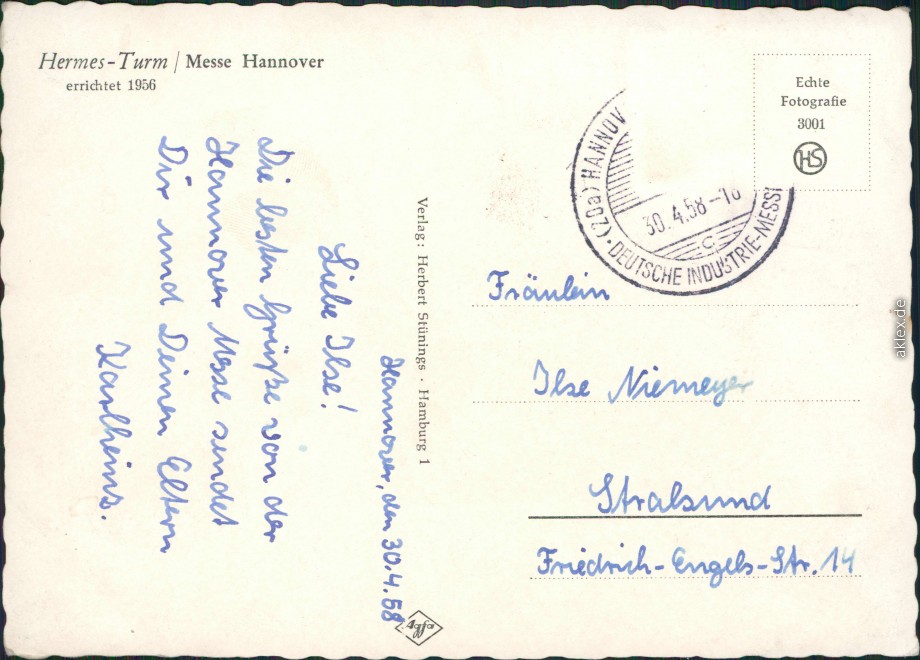 Hermes-Turm / Messe Hannover
errichtet 1956
Hannover, den 30.4.58
Liebe Ilse!
Die besten Grüße von der
Hannover Messe sendet
Dir und Deinen Eltern
Karlheinz.
Verlag: Herbert Stünings · Hamburg 1
Agfa
Echte
Fotografie
3001
HS
(20a) HANNOV
30.4.58-18
C
· DEUTSCHE INDUSTRIE-MESS
Fräulein
Ilse Niemeyer
Stralsund
Friedrich-Engels-Str. 14
aklex.de